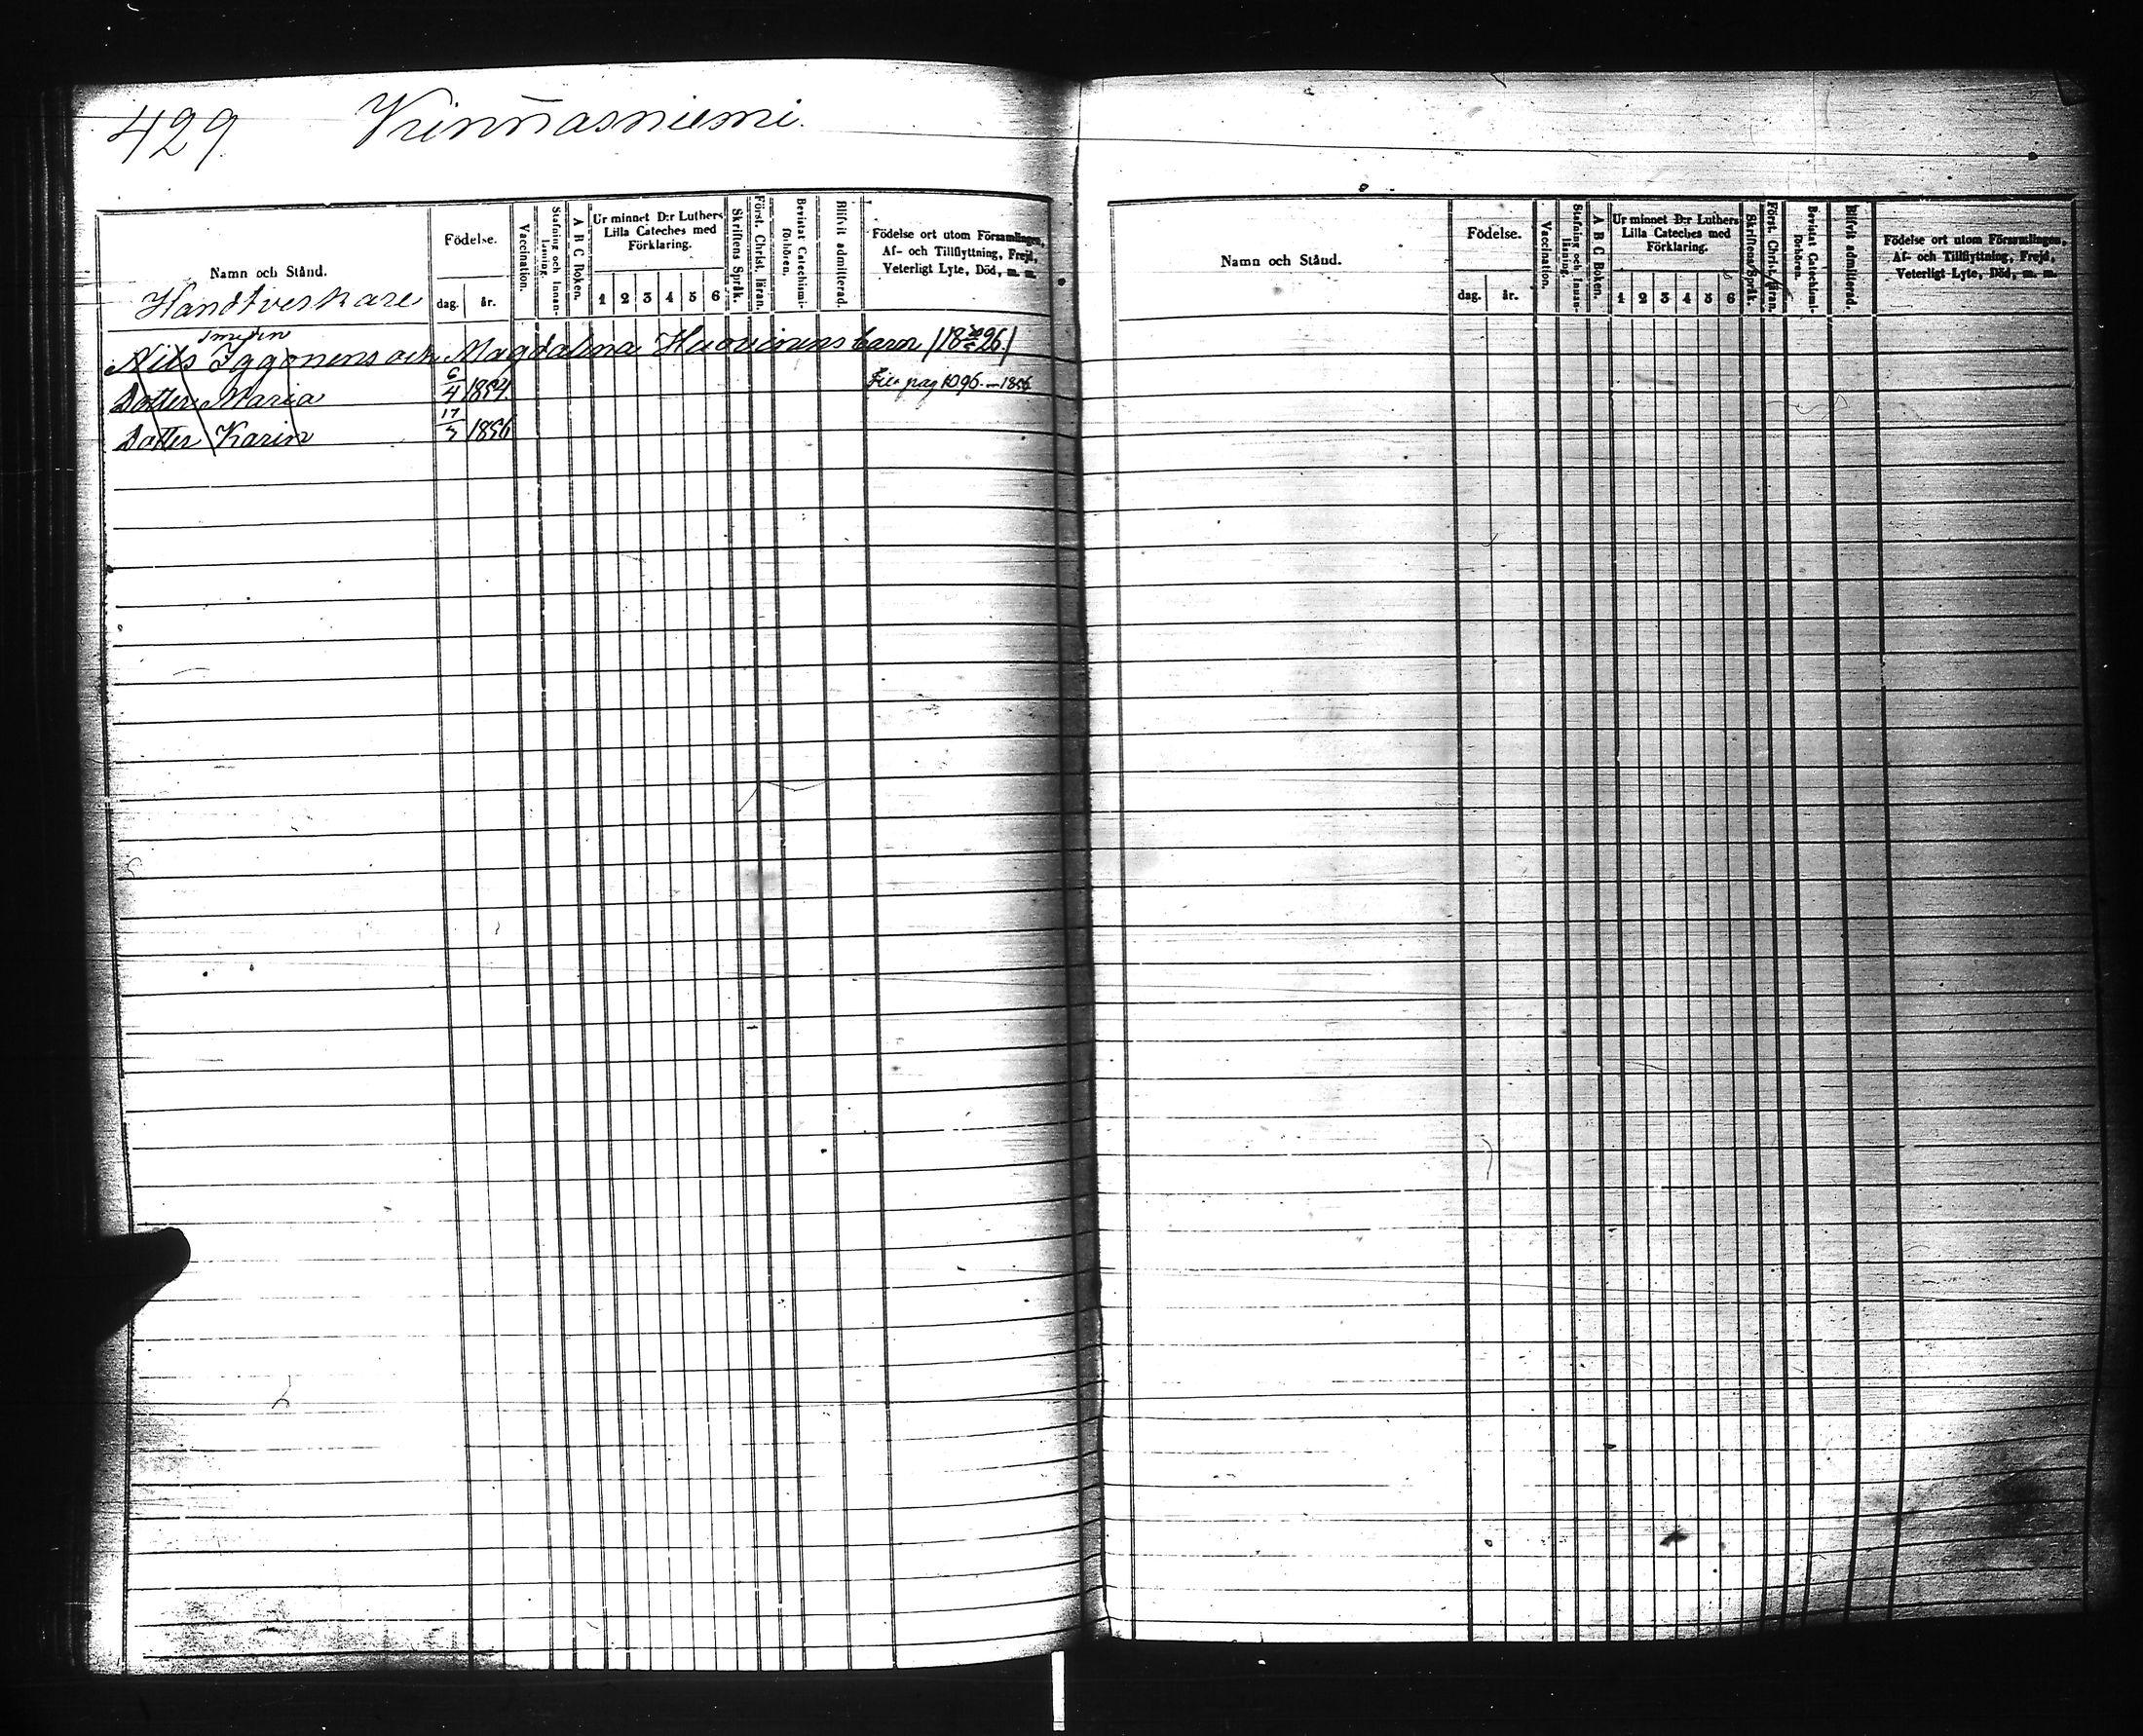 429 Kinnasniemi.
Namn och Stånd.
Födelse.
dag. år.
Vaccination.
Stafning och Innan-
läsning.
A B C Boken.
Ur minnet D:r Luthers
Lilla Cateches med
Förklaring.
1 2 3 4 5 6
Skriftens Språk.
Först. Christ. läran.
Bevistat Catechismi-
förhören.
Blifvit admitterad.
Födelse ort utom Församlingen,
Af- och Tillflyttning, Frejd,
Veterligt Lyte, Död, m. m.
Handtverkare
Smeden
Nils Iggonens och Magdalena Huovinens barn
Dotter Maria 6/4 1854. Till pag 1096. — 1856
Dotter Karin 17/3 1856
Namn och Stånd.
Födelse.
dag. år.
Vaccination.
Stafning och Innan-
läsning.
A B C Boken.
Ur minnet D:r Luthers
Lilla Cateches med
Förklaring.
1 2 3 4 5 6
Skriftens Språk.
Först. Christ. läran.
Bevistat Catechismi-
förhören.
Blifvit admitterad.
Födelse ort utom Församlingen,
Af- och Tillflyttning, Frejd,
Veterligt Lyte, Död, m. m.